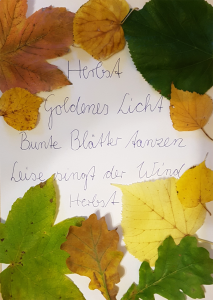 Herbst
Goldenes Licht
Bunte Blätter tanzen
Leise singt der Wind
Herbst